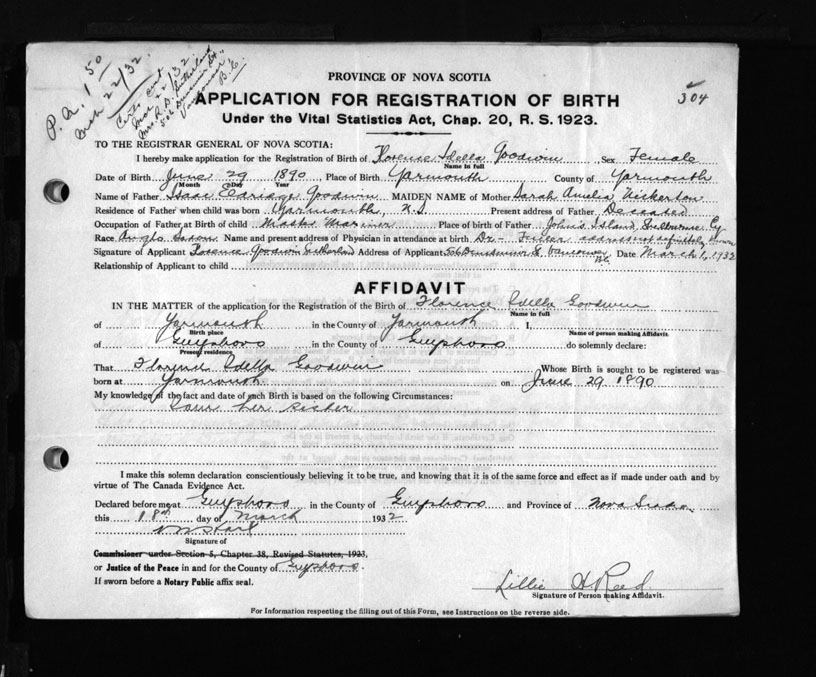 P.A. 1 50
Mch 22/32.
Certs sent
Mar 22/32
Mrs. R.B. Sutherland
Vancouver
B.C.
304
PROVINCE OF NOVA SCOTIA
APPLICATION FOR REGISTRATION OF BIRTH
Under the Vital Statistics Act, Chap. 20, R. S. 1923.
TO THE REGISTRAR GENERAL OF NOVA SCOTIA:
I hereby make application for the Registration of Birth of Florence Idella Goodwin, Sex Female
Name in full
Date of Birth June 29 1890, Place of Birth Yarmouth County of Yarmouth
Month Day Year
Name of Father Isaac Eldridge Goodwin MAIDEN NAME of Mother Sarah Amelia Nickerson
Residence of Father when child was born Yarmouth, N.S. Present address of Father Deceased
Occupation of Father at Birth of child Master Mariner Place of birth of Father John's Island Shelburne Cy
Race Anglo Saxon Name and present address of Physician in attendance at birth Dr - Fuller address not definitely known
Signature of Applicant Florence Goodwin Sutherland Address of Applicant 506 Dunsmuir St Vancouver B.C. Date March 1, 1932
Relationship of Applicant to child
AFFIDAVIT
IN THE MATTER of the application for the Registration of the Birth of Florence Idella Goodwin
Name in full
of Yarmouth in the County of Yarmouth I,
Birth place Name of person making Affidavit.
of Guysboro in the County of Guysboro do solemnly declare:
Present residence
That Florence Idella Goodwin Whose Birth is sought to be registered was
born at Yarmouth on June 29 1890
My knowledge of the fact and date of such Birth is based on the following Circumstances:
I am her sister
I make this solemn declaration conscientiously believing it to be true, and knowing that it is of the same force and effect as if made under oath and by
virtue of The Canada Evidence Act.
Declared before me at Guysboro in the County of Guysboro and Province of Nova Scotia
this 18th day of March 1932
Signature of
Commissioner under Section 5, Chapter 38, Revised Statutes, 1923,
or Justice of the Peace in and for the County of Guysboro.
If sworn before a Notary Public affix seal.
Lillie H Reed.
Signature of Person making Affidavit.
For Information respecting the filling out of this Form, see Instructions on the reverse side.